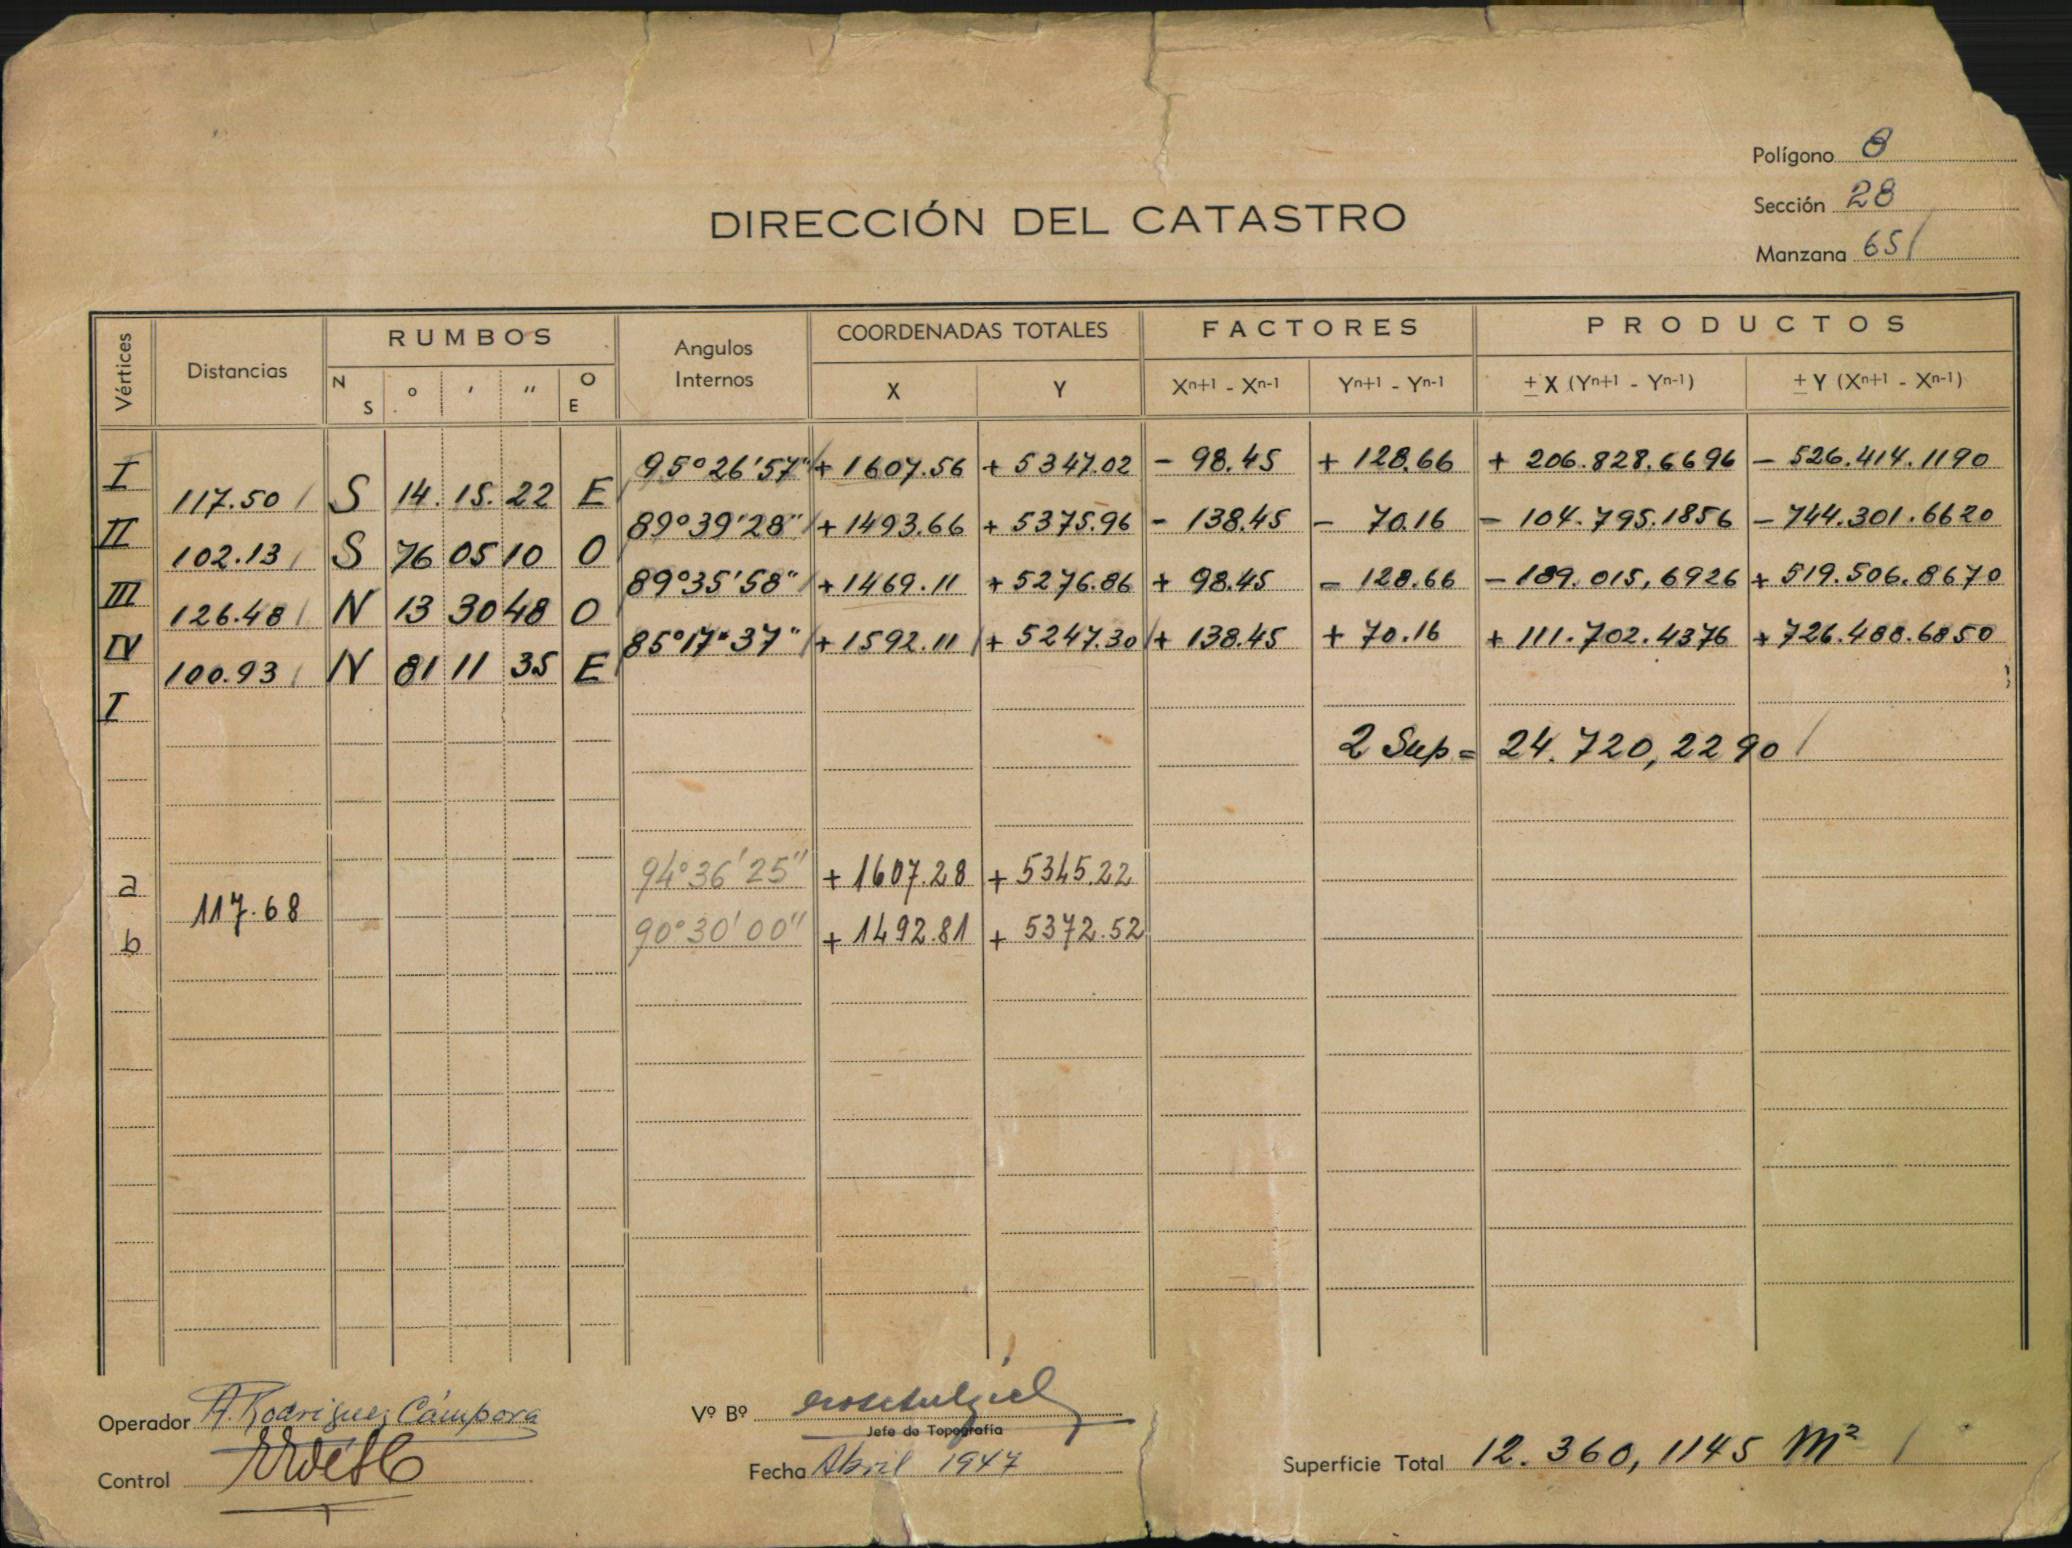 Polígono 8
Sección 28
Manzana 651
DIRECCIÓN DEL CATASTRO
Vértices Distancias RUMBOS Angulos Internos COORDENADAS TOTALES FACTORES PRODUCTOS
N S ° ' " O E X Y Xn+1 - Xn-1 Yn+1 - Yn-1 ± X (Yn+1 - Yn-1) ± Y (Xn+1 - Xn-1)
I 95°26'57" + 1607.56 + 5347.02 - 98.45 + 128.66 + 206.828.6696 - 526.414.1190
117.50 S 14. 15. 22 E
II 89°39'28" + 1493.66 + 5375.96 - 138.45 - 70.16 - 104.795.1856 - 744.301.6620
102.13 S 76 05 10 O
III 89°35'58" + 1469.11 + 5276.86 + 98.45 - 128.66 - 189.015,6926 + 519.506.8670
126.48 N 13 30 48 O
IV 85°17'37" + 1592.11 + 5247.30 + 138.45 + 70.16 + 111.702.4376 + 726.488.6850
100.93 N 81 11 35 E
I
2 Sup = 24.720,2290
a 94°36'25" + 1607.28 + 5345.22
117.68
b 90°30'00" + 1492.81 + 5372.52
Operador A. Rodriguez Cámpora
Vº Bº
Jefe de Topografía
Control
Fecha Abril 1947
Superficie Total 12.360,1145 M²